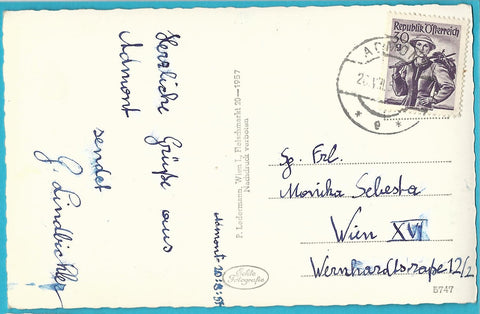 Herzliche Grüße aus
Admont
sendet
G. Lindbichler
Admont 20.8.57
P. Ledermann, Wien I., Fleischmarkt 20—1957
Nachdruck verboten
Echte
Fotografie
Republik Österreich
30
g
Sg. Frl.
Monika Sebesta
Wien XVI
Wernhardtstraße 12/2
B747